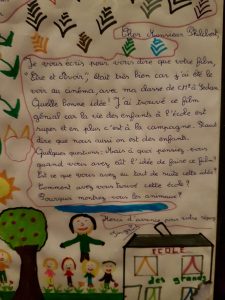 Cher Monsieur Philibert,
Je vous écris pour vous dire que votre film,
"Être et Avoir", était très bien car j'ai été le
voir au cinéma, avec ma classe de CM² à Sedan.
Quelle bonne idée! J'ai trouvé ce film
génial car la vie des enfants à l'école est
super et en plus c'est à la campagne. Il faut
dire que nous aussi on est des enfants.
Quelques questions: Mais à quoi pensiez vous
quand vous avez eût l'idée de faire ce film?
Est ce que vous avez eu tout de suite cette idée?
Comment avez vous trouvé cette école?
Pourquoi montrez vous les animaux?
Merci d'avance pour votre réponse
ECOLE
des grands